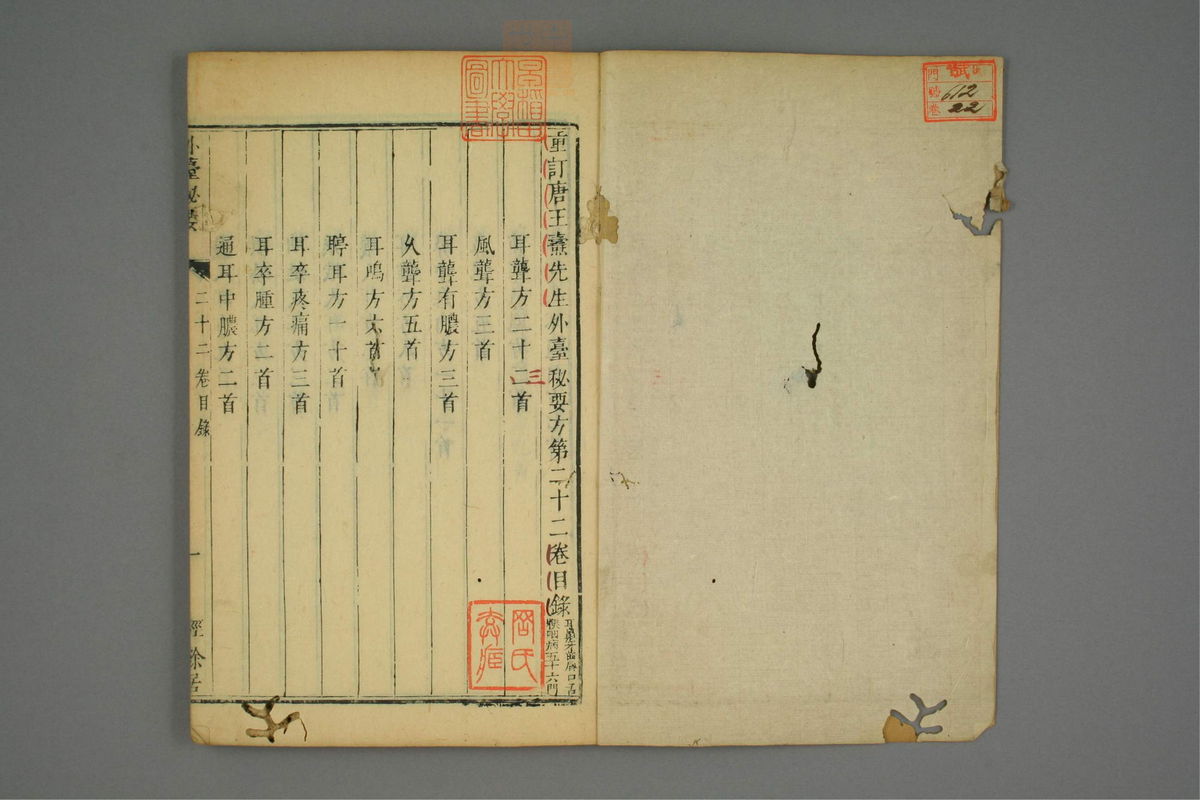 門 號 卷
612
22
重訂唐王燾先生外臺秘要方第二十二卷目錄
耳聾方二十二首
三
風聾方三首
耳聾有膿方三首
久聾方五首
耳鳴方六首
聤耳方一十首
耳卒疼痛方三首
耳卒腫方二首
通耳中膿方二首
外臺秘要
二十二卷目錄
一
經餘居